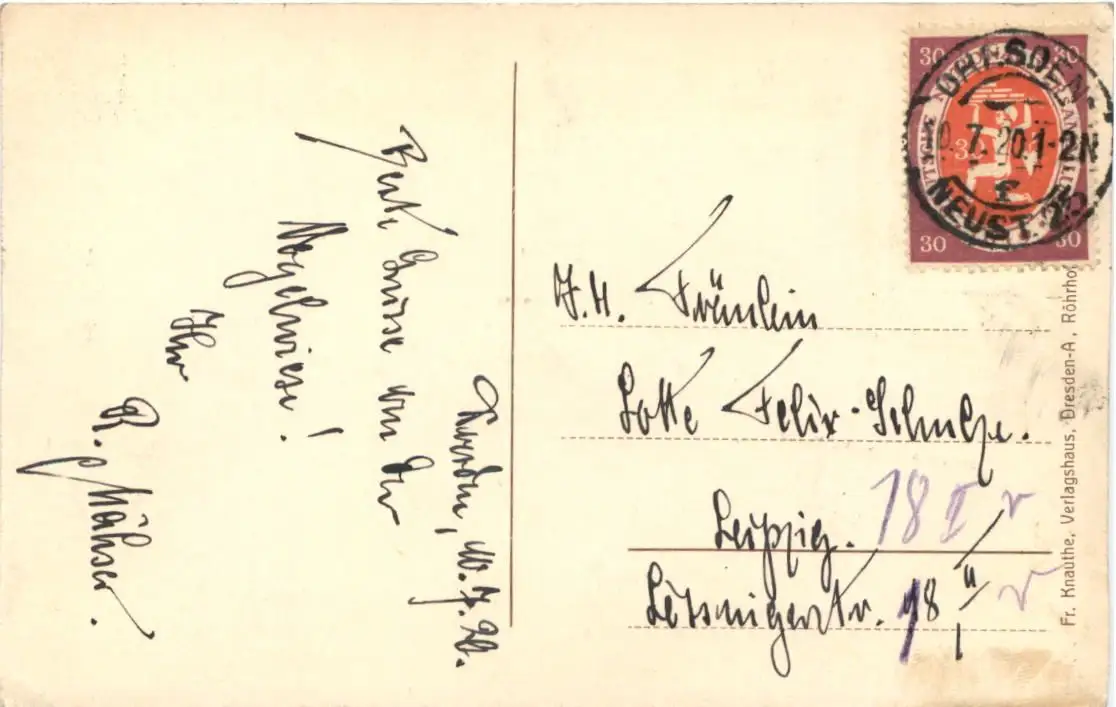 Dresden, 10.7.20.
Beste Grüsse von der
Vogelwiese!
Ihr
R. Mähser.
30 30
DEUTSCHE NATIONALVERSAMMLUNG
30
30 30
DRESDEN-
10.7.20.1-2N
NEUST. 23
Fräulein
Lotte Felix-Schulze.
Leipzig.
18 I
Lössnigerstr. 18 II
I
Fr. Knauthe, Verlagshaus, Dresden-A,